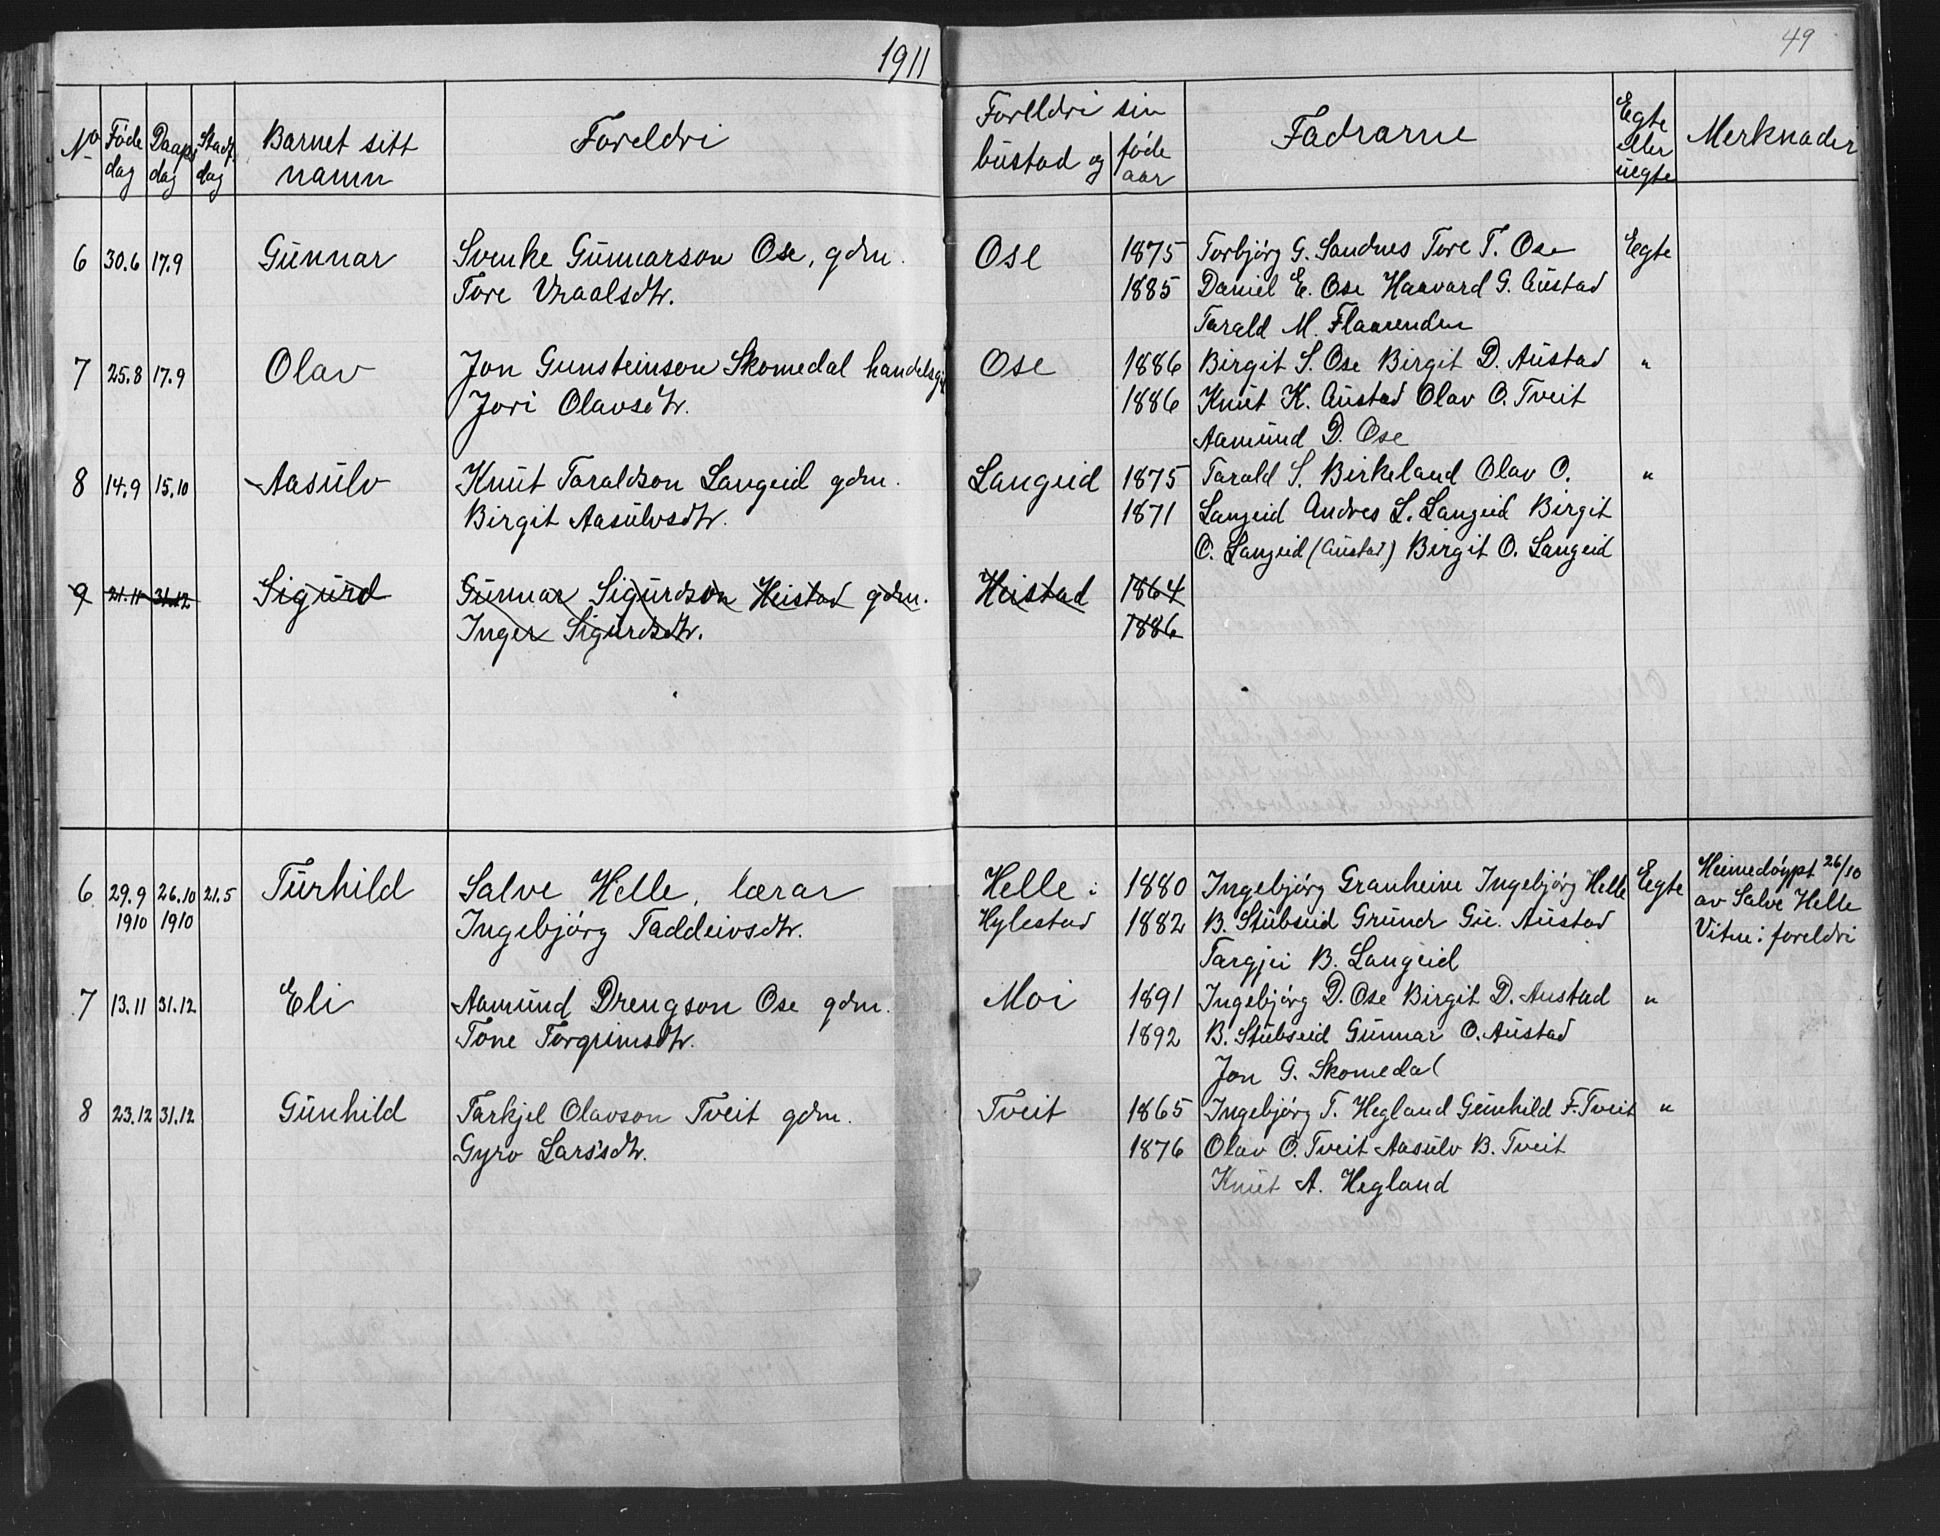 1911
49
No Føde dag Daaps dag Stadf. dag Barnet sitt namn Foreldri Forelldri sin bustad og føde aar Fadrarne Egte eller uegte Merknader
6 30.6 17.9 Gunnar Svenke Gunnarson Ose, gdm. Ose 1875 Torbjørg G. Sandnes Tore T. Ose Egte
Tore Vraalsdtr. 1885 Daniel E. Ose Haavard G. Austad
Tarald M. Flaarenden
7 25.8 17.9 Olav Jon Gunsteinson Skomedal Ose 1886 Birgit S. Ose Birgit D. Austad "
Jori Olavsdtr. 1886 Knut K. Austad Olav O. Tveit
Aamund D. Ose
8 14.9 15.10 Aasulv Knut Taraldson Langeid gdm. Langeid 1875 Tarald S. Birkeland Olav O. "
Birgit Aasulvsdtr. 1871 Langeid Andres L. Langeid Birgit
O. Langeid (Austad) Birgit O. Langeid
9 21.11 31.12 Sigurd Gunnar Sigurdson Heistad gdm. Heistad 1864
Inger Sigurdsdtr. 1886
6 29.9 26.10 21.5 Turhild Salve Helle, lærar Helle i 1880 Ingebjørg Granheim Ingebjørg Helle Egte Heimedøypt 26/10
1910 1910 Ingebjørg Taddeivsdtr. Hylestad 1882 B. Stubseid Grunde Gu. Austad av Salve Helle
Targjei B. Langeid Vitne: foreldri
7 13.11 31.12 Eli Aamund Drengson Ose gdm. Moi 1891 Ingebjørg D. Ose Birgit D. Austad "
Tone Torgrimsdtr. 1892 B. Stubseid Gunnar O. Austad
Jon G. Skomedal
8 23.12 31.12 Gunhild Tarkjel Olavson Tveit gdm. Tveit 1865 Ingebjørg T. Hegland Gunhild F. Tveit "
Gyro Larsdtr. 1876 Olav O. Tveit Aasulv B. Tveit
Knut A. Hegland